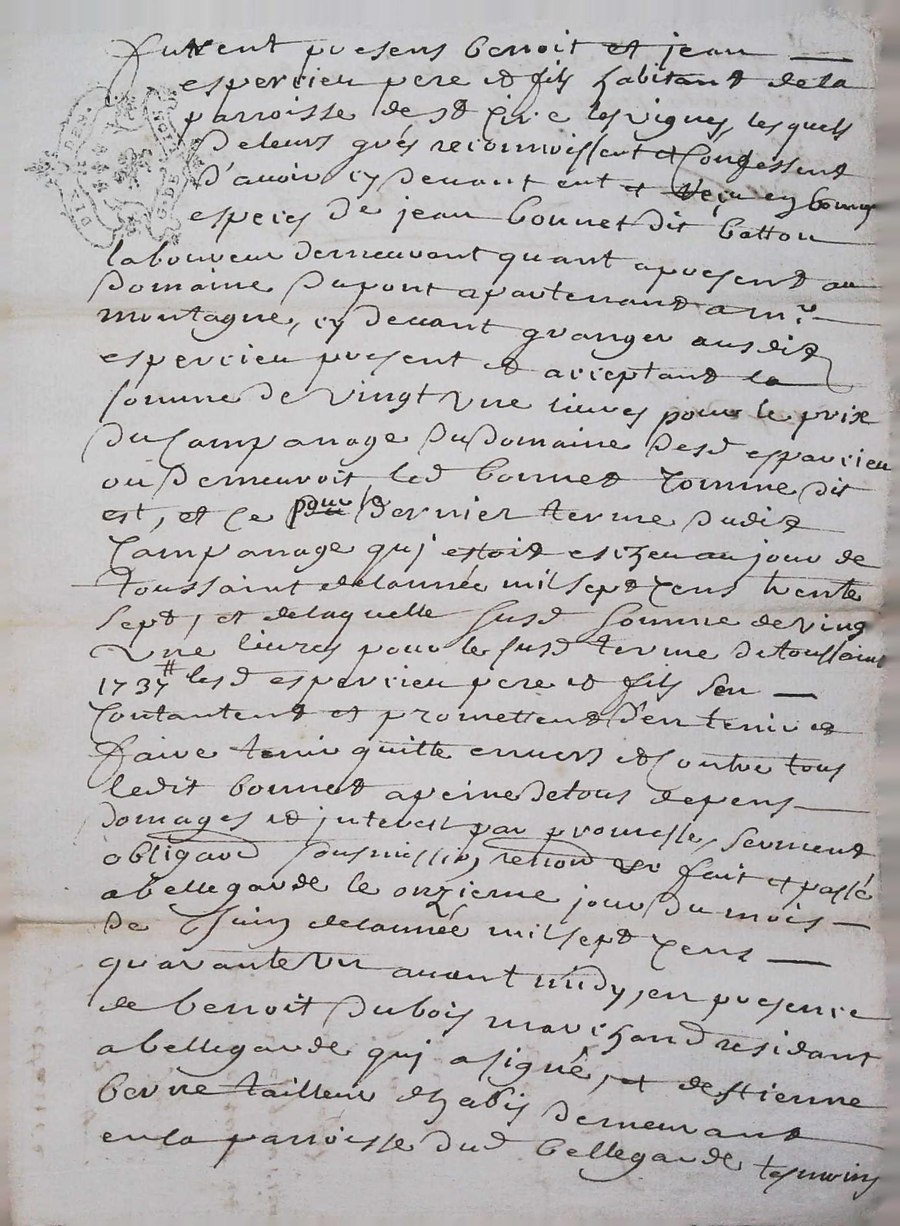 furent presens benoit et jean
espercieu pere et fils habitant de la
parroisse de st Circ les vignes, lesquels
De leurs grés reconnoissent et Confessent
D'avoir cy devant eut et Reçu en bonnes
especes de jean bonnet dit batton
laboureur demeurant quant apresent au
Domaine Dupont apartenant a mr
montagne, cy devant granger ausdit
espercieu present et acceptant la
somme de vingt Une livres pour le prix
du Campanage du Domaine desd espercieu
ou Demeuroit led bonnet Comme dit
est, et Ce pour le dernier terme dudit
Campanage qui estoit esizeu au jour de
Toussaint de lannée mil sept Cens trente
sept, et de laquelle susd somme de ving
Une livres pour le susd terme de toussaint
1737# lesd espercieu pere et fils sen
Contantent et promettent d'en tenir et
faire tenir quitte envers et Contre tous
ledit bonnet a peine de tous depens
domages et interest par promesse, serment
obligaõn sousmission, renonõn fait et passé
a bellegarde le onzieme jour du mois
de Juin de lannée mil sept Cens
quarante Un avant midy, en presence
de benoit Dubois marchand residant
a bellegarde qui a signé, et destienne
berne tailleur dhabis demeurant
en la parroisse dud bellegarde tesmoins